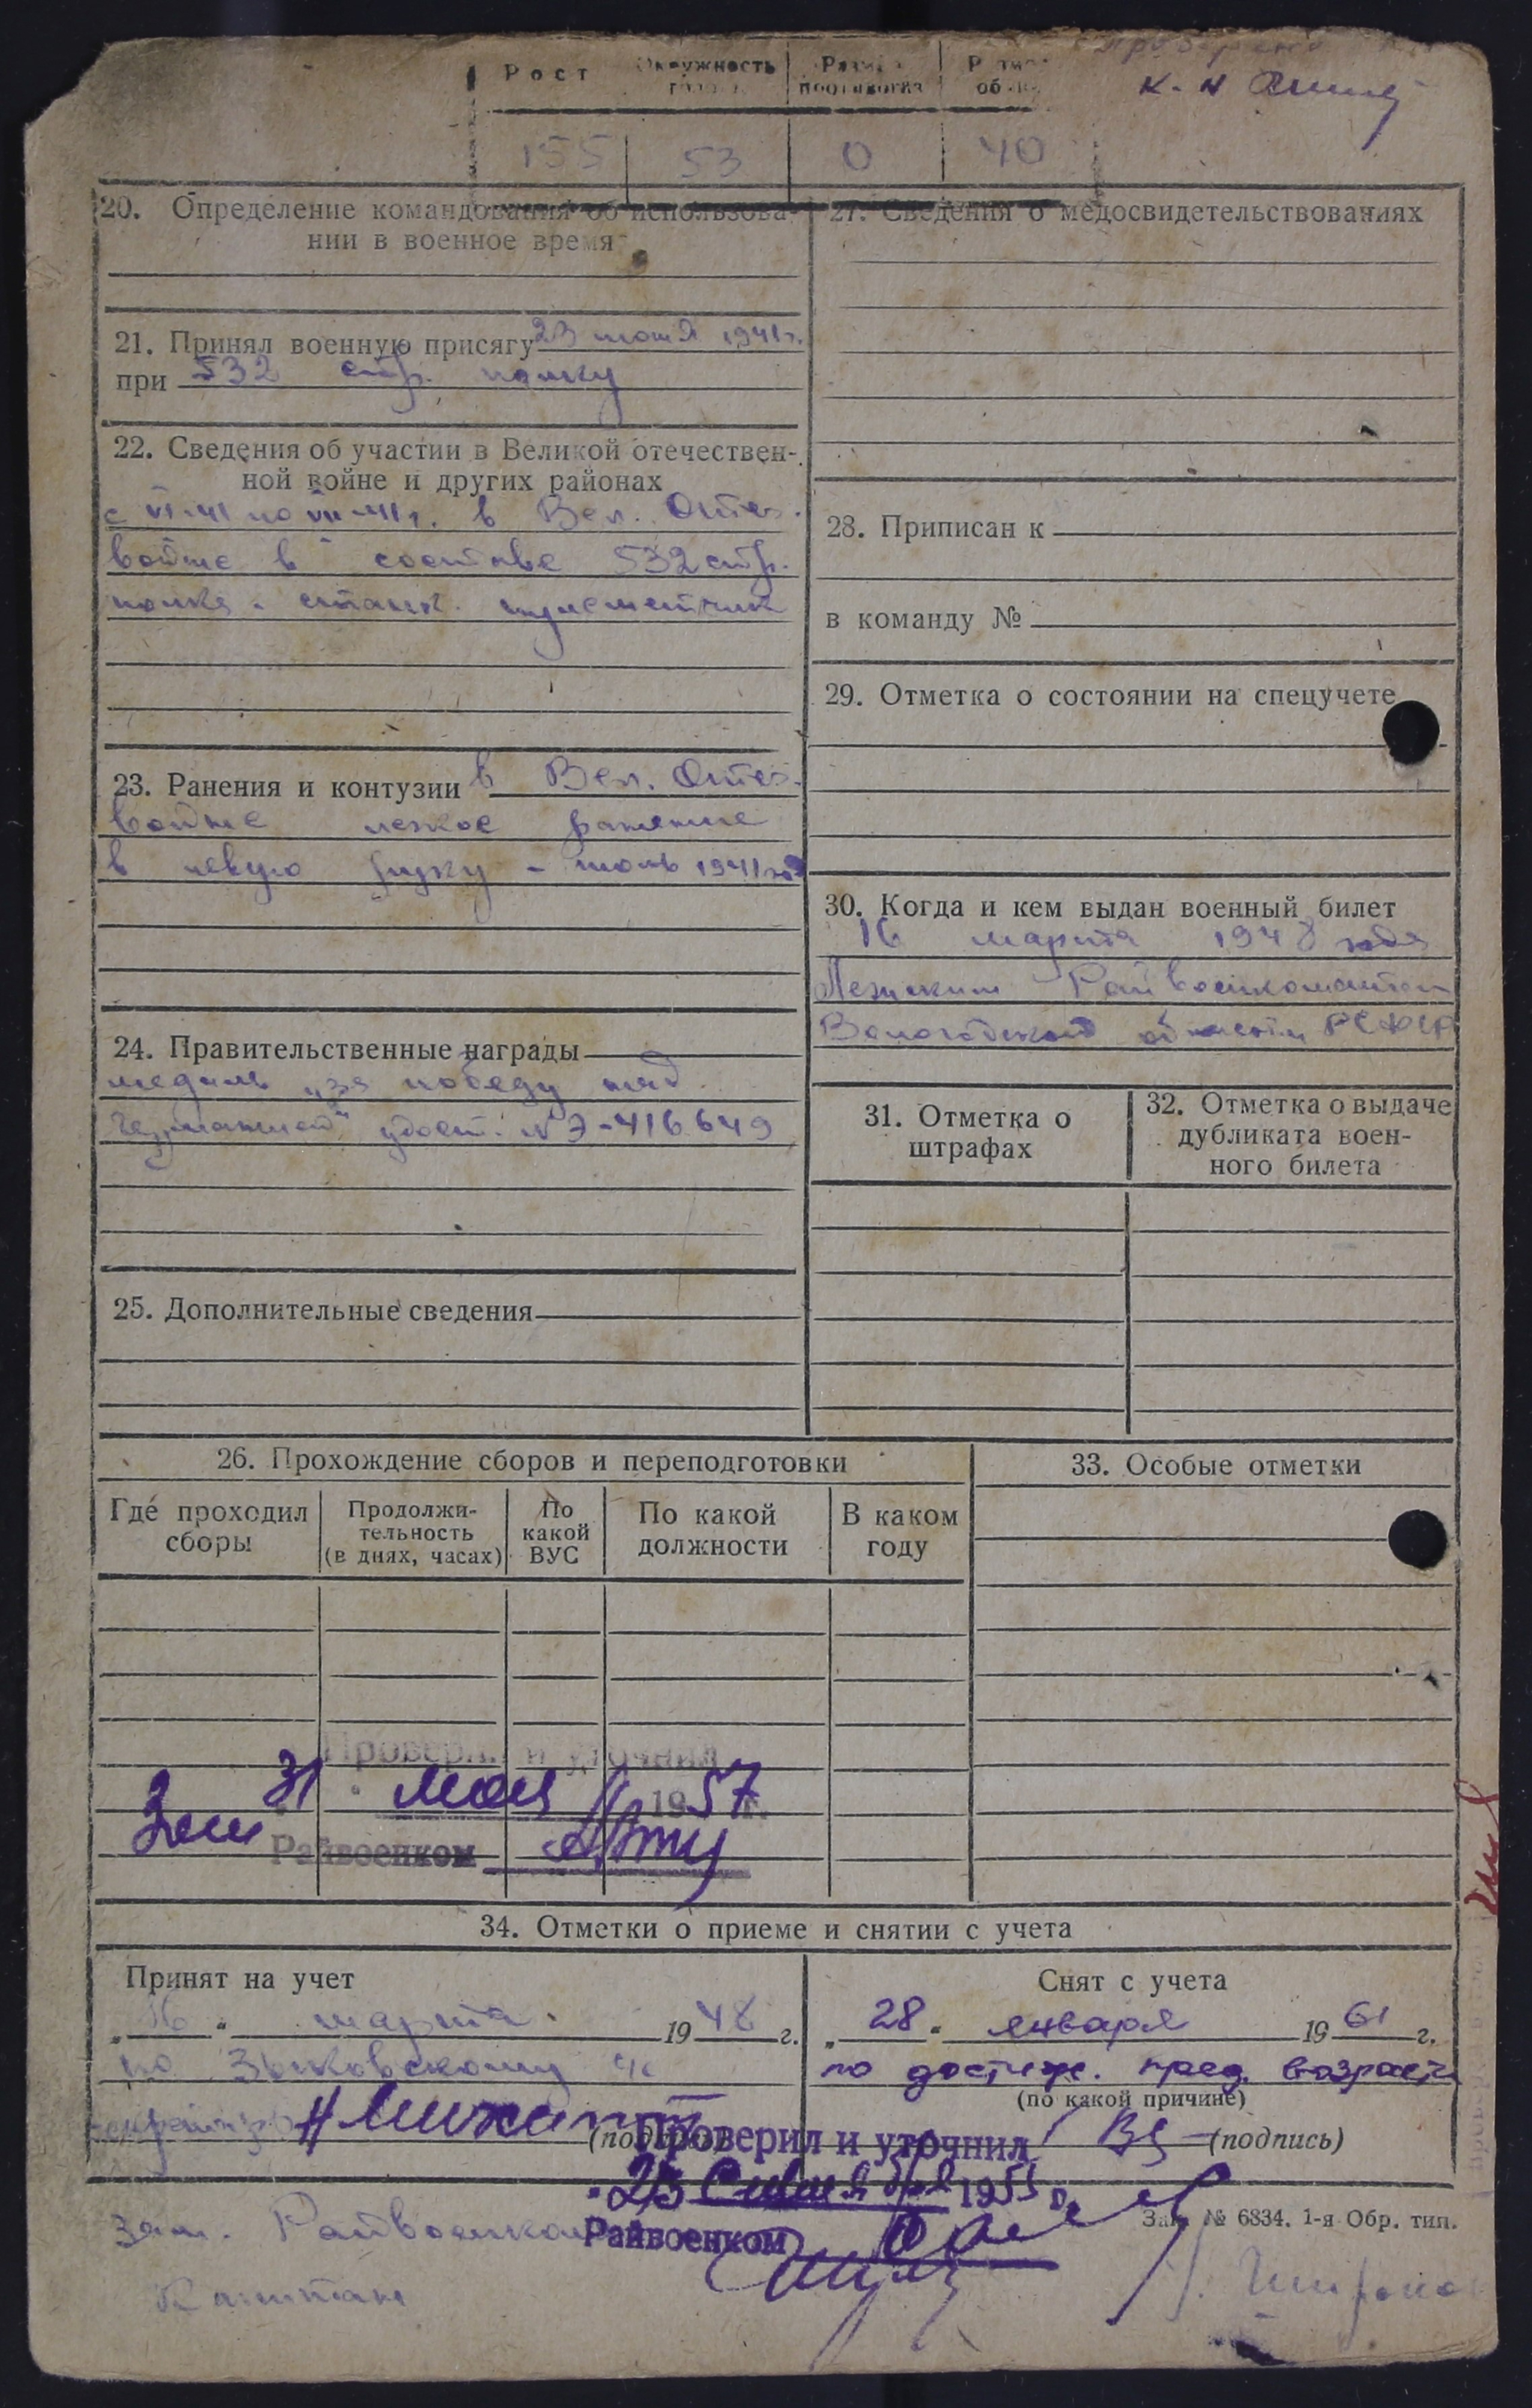 Рост
Окружность
Разм
противогаза
155 53 0 40
20. Определение командования об использова-
нии в военное время
21. Принял военную присягу 23 июня 1941 г.
при 532 стр. полку
22. Сведения об участии в Великой отечествен-
ной войне и других районах
с VI-41 по VII-41 г. в Вел. Отеч.
войне в составе 532 стр.
полка. станк. пулеметчик
23. Ранения и контузии в Вел. Отеч.
войне легкое ранение
в левую руку - июль 1941 год
24. Правительственные награды
медаль „за победу над
Германией" удост. № Э-416649
25. Дополнительные сведения
27. Сведения о медосвидетельствованиях
28. Приписан к
в команду №
29. Отметка о состоянии на спецучете
30. Когда и кем выдан военный билет
16 марта 1948 года
Райвоенкоматом
Вологодской области РСФСР
31. Отметка о
штрафах
32. Отметка о выдаче
дубликата воен-
ного билета
26. Прохождение сборов и переподготовки
Где проходил
сборы
Продолжи-
тельность
(в днях, часах)
По
какой
ВУС
По какой
должности
В каком
году
33. Особые отметки
Проверил и уточнил
31 мая 1957 г.
Зам Райвоенком
34. Отметки о приеме и снятии с учета
Принят на учет
„16" марта 1948 г.
по Зыковскому
(подпись)
Снят с учета
„28" января 1961 г.
по достиж. пред. возраста
(по какой причине)
(подпись)
Проверил и уточнил
1955 г.
зам. Райвоенком
Райвоенком
Капитан
Зак. № 6834. 1-я Обр. тип.